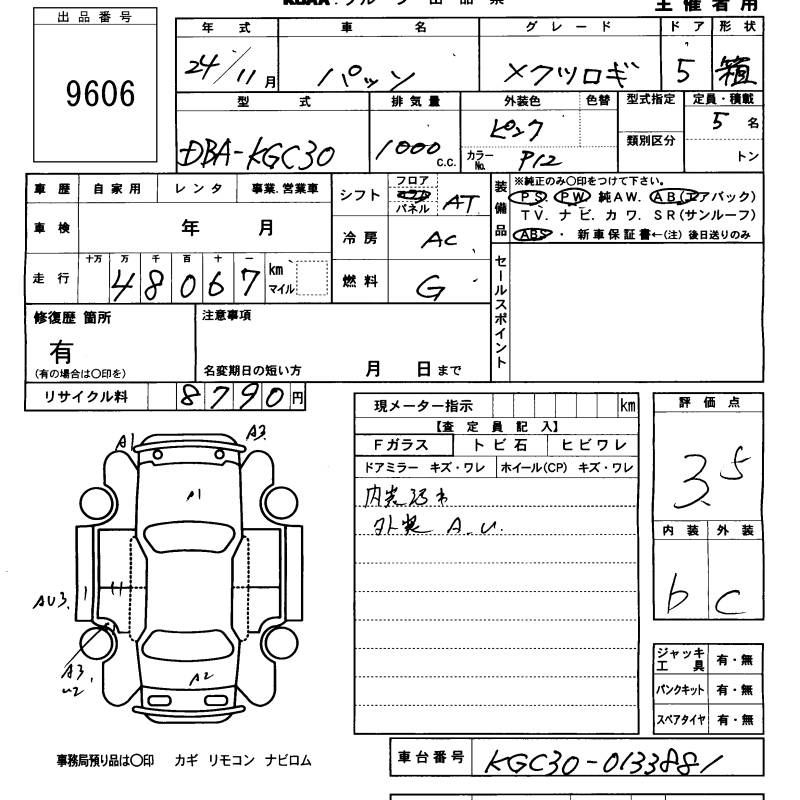 出品票
主催者用
出品番号
9606
年式 車名 グレード ドア 形状
24/11月 パッソ +クツロギ 5 箱
型式 排気量 外装色 色替 型式指定 定員・積載
DBA-KGC30 1000c.c. ピンク 類別区分 5名
カラーNo. P12 トン
車歴 自家用 レンタ 事業.営業車
シフト フロア コラム パネル AT
装備品 ※純正のみ○印をつけて下さい。
PS. PW 純AW. AB(エアバック)
TV. ナビ. カワ. SR(サンルーフ)
ABS・新車保証書←(注)後日送りのみ
車検 年 月
冷房 AC
走行 十万 万 千 百 十 一
48067 km マイル
燃料 G
セールスポイント
修復歴 箇所
有
(有の場合は○印を)
注意事項
名変期日の短い方 月 日まで
リサイクル料 8790円
現メーター指示 km
【査定員記入】
Fガラス トビ石 ヒビワレ
ドアミラー キズ・ワレ ホイール(CP) キズ・ワレ
外装 A.U.
評価点
3.5
内装 外装
b C
A1 A3
A1
AU3.
A3
U2
A2
ジャッキ 工具 有・無
パンクキット 有・無
スペアタイヤ 有・無
事務局預り品は○印 カギ リモコン ナビロム
車台番号 KGC30-0133881